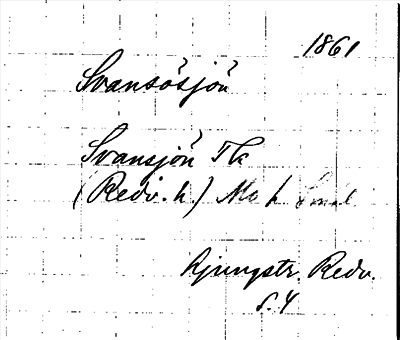 1861
Svansösjön
Svansjön Tk
(Redv. h.) Mo h Smål
Ljungstr. Redv.
s. 4